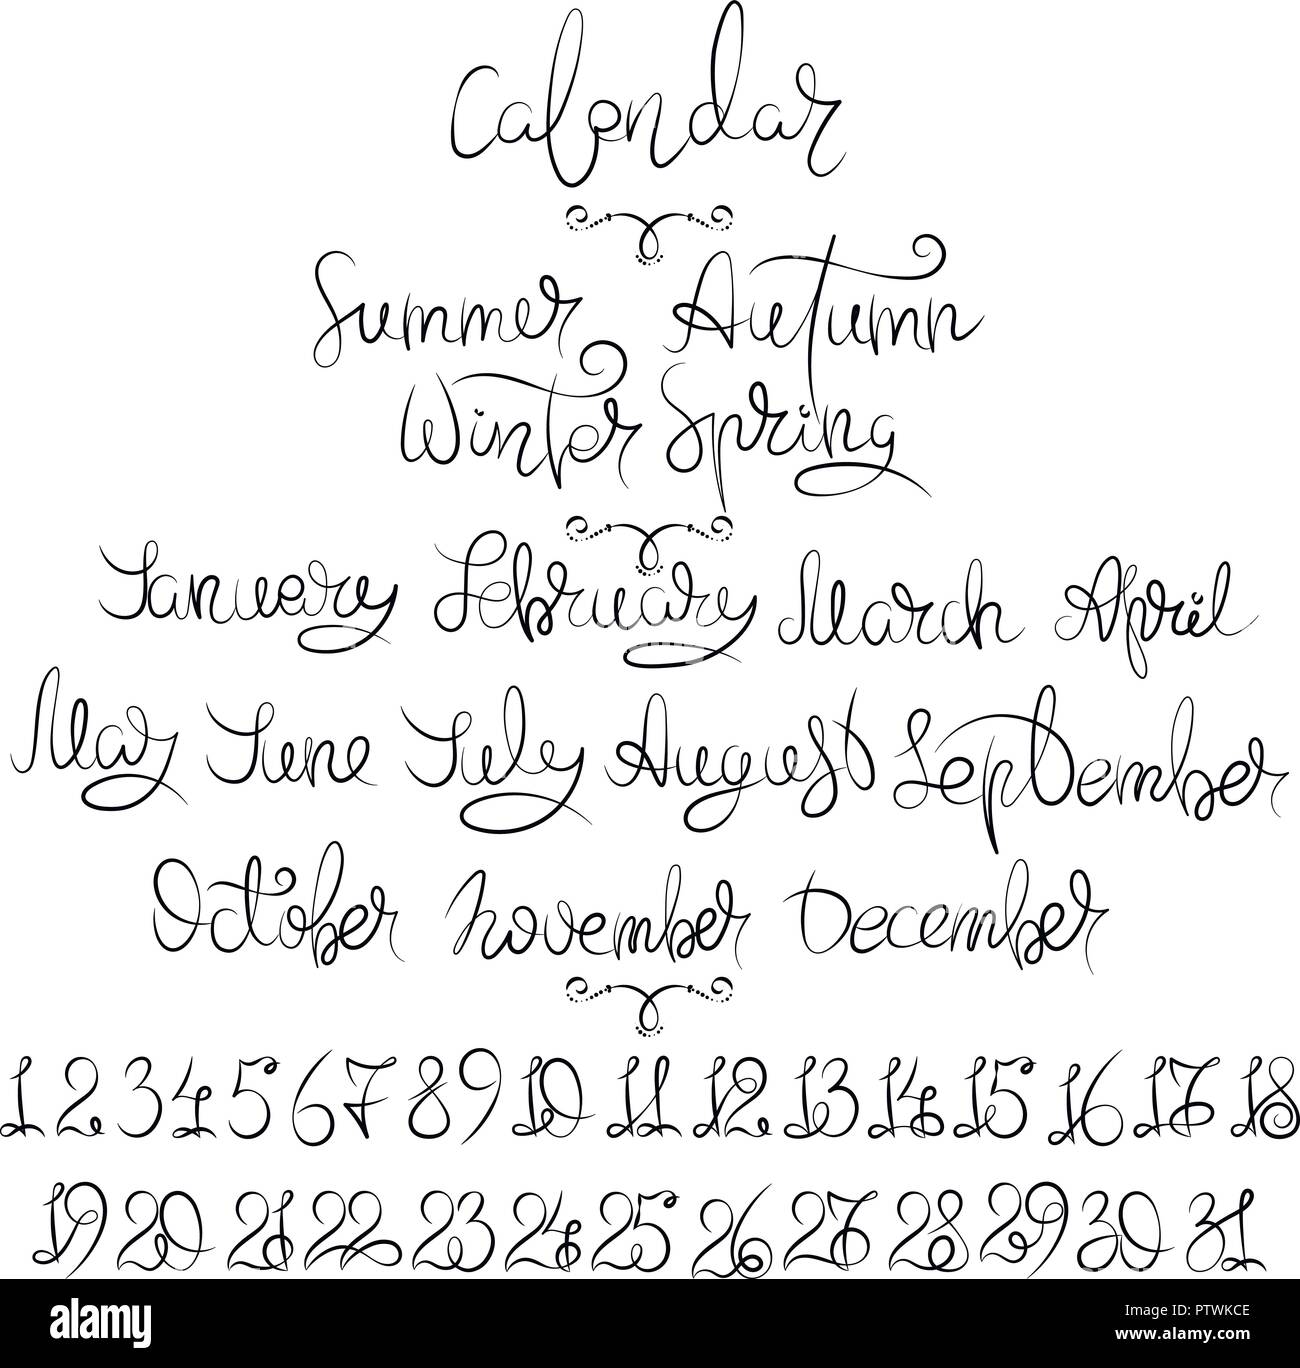 Calendar
Summer Autumn
Winter Spring
January February March April
May June July August September
October November December
1 2 3 4 5 6 7 8 9 10 11 12 13 14 15 16 17 18
19 20 21 22 23 24 25 26 27 28 29 30 31
alamy
alamy stock photo
Image ID: PTWKCE
www.alamy.com